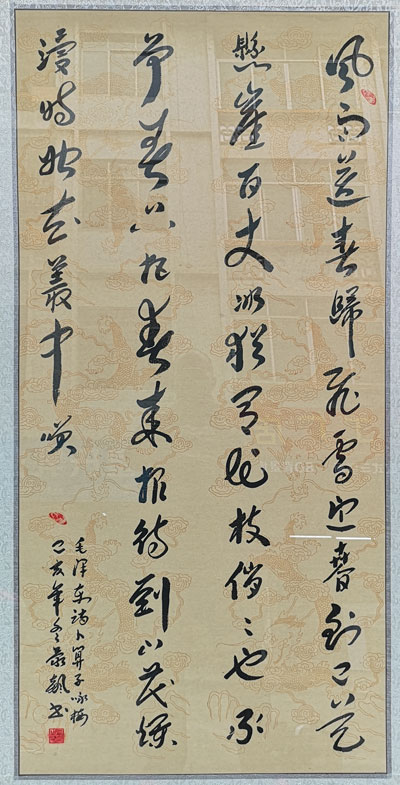 風雨送春歸飛雪迎春到已是
懸崖百丈冰猶有花枝俏〻也不
爭春只把春來報待到山花爛
漫時她在叢中笑
毛澤東詩卜算子咏梅
己亥年冬書